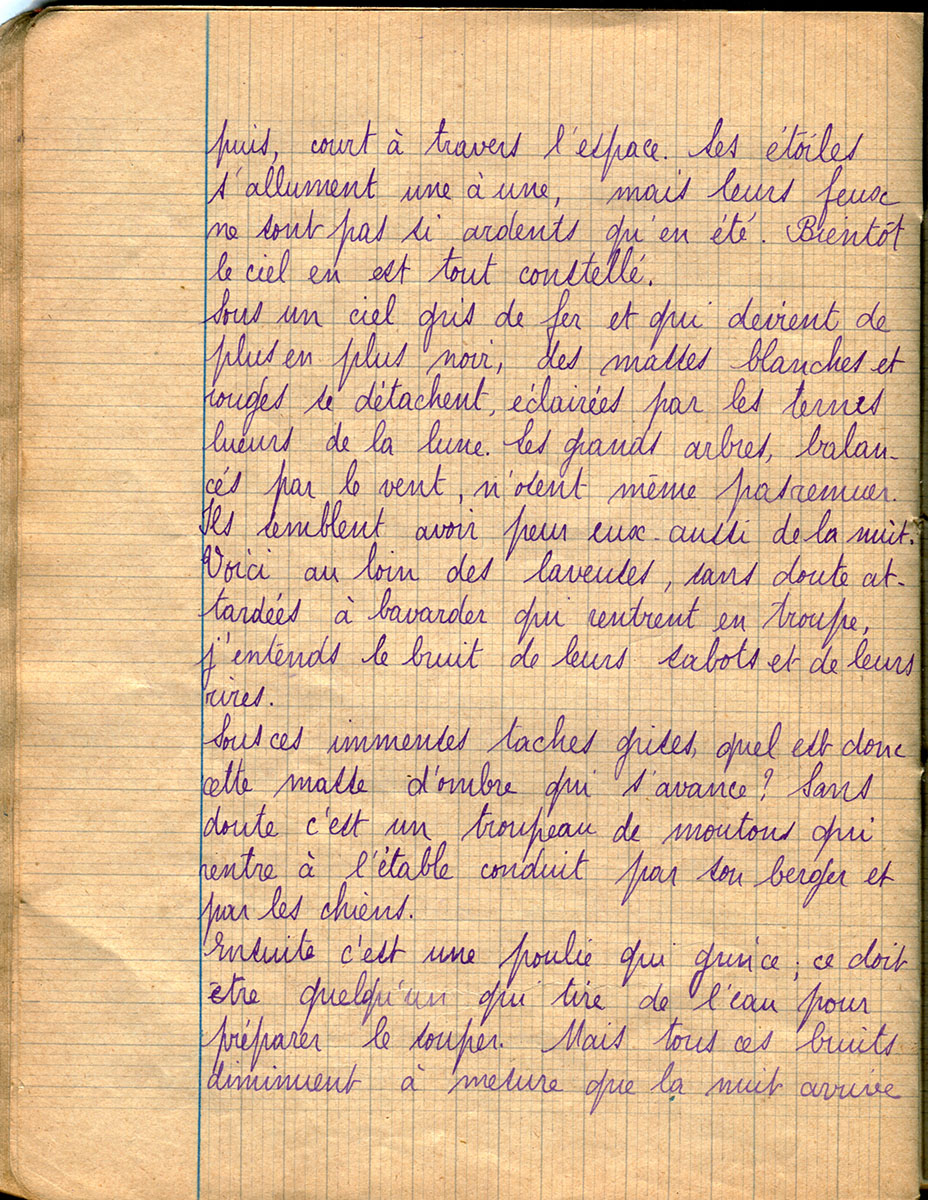 puis, court à travers l'espace. Les étoiles
s'allument une à une, mais leurs feux
ne sont pas si ardents qu'en été. Bientôt
le ciel en est tout constellé.
Sous un ciel gris de fer et qui devient de
plus en plus noir, des masses blanches et
rouges se détachent, éclairées par les ternes
lueurs de la lune. Les grands arbres, balan-
cés par le vent, n'osent même pas remuer.
Ils semblent avoir peur eux-aussi de la nuit.
Voici au loin des laveuses, sans doute at-
tardées à bavarder qui rentrent en troupe,
j'entends le bruit de leurs sabots et de leurs
rires.
Sous ces immenses taches grises, quel est donc
cette masse d'ombre qui s'avance? Sans
doute c'est un troupeau de moutons qui
rentre à l'étable conduit par son berger et
par les chiens.
Ensuite c'est une poulie qui grince; ce doit
etre quelqu'un qui tire de l'eau pour
préparer le souper. Mais tous ces bruits
diminuent à mesure que la nuit arrive